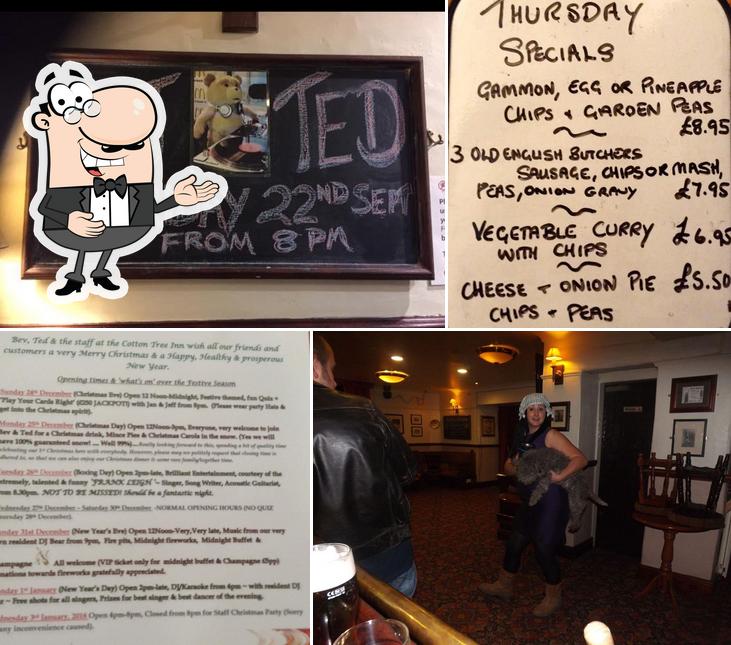 TED
22ND SEPT
FROM 8PM
THURSDAY
SPECIALS
GAMMON, EGG OR PINEAPPLE
CHIPS + GARDEN PEAS
£8.95
3 OLD ENGLISH BUTCHERS
SAUSAGE, CHIPS OR MASH,
PEAS, ONION GRAVY £7.95
VEGETABLE CURRY £6.95
WITH CHIPS
CHEESE + ONION PIE £5.50
CHIPS + PEAS
Bev, Ted & the staff at the Cotton Tree Inn wish all our friends and
customers a very Merry Christmas & a Happy, Healthy & prosperous
New Year.
Opening times & 'what's on' over the Festive Season
Sunday 24th December (Christmas Eve) Open 12 Noon-Midnight, Festive themed, fun Quiz +
'Play Your Cards Right' (£250 JACKPOT!) with Jan & Jeff from 8pm. (Please wear party Hats &
get into the Christmas spirit).
Monday 25th December (Christmas Day) Open 12Noon-3pm, Everyone, very welcome to
Bev & Ted for a Christmas drink, Mince Pies & Christmas Carols in the snow. (Yes we will
have 100% guaranteed snow! ... Well 99%)...Really looking forward to this, spending a bit of quality time
celebrating our 1st Christmas here with everybody. However, please may we politely request that closing time is
adhered to, so that we can also enjoy our Christmas dinner & some rare family together time.
Tuesday 26th December (Boxing Day) Open 2pm-late, Brilliant Entertainment, courtesy of the
extremely, talented & funny 'FRANK LEIGH' ~ Singer, Song Writer, Acoustic Guitarist,
from 8.30pm. NOT TO BE MISSED! Should be a fantastic night.
Wednesday 27th December – Saturday 30th December -NORMAL OPENING HOURS (NO QUIZ
Thursday 28th December).
Sunday 31st December (New Year's Eve) Open 12Noon-Very,Very late, Music from our very
own resident DJ Bear from 9pm, Fire pits, Midnight fireworks, Midnight Buffet &
Champagne All welcome (VIP ticket only for midnight buffet & Champagne (£5pp)
donations towards fireworks gratefully appreciated.
Monday 1st January (New Year's Day) Open 2pm-late, DJ/Karaoke from 6pm ~ with resident DJ
~ Free shots for all singers, Prizes for best singer & best dancer of the evening.
Wednesday 3rd January, 2018 Open 4pm-8pm, Closed from 8pm for Staff Christmas Party (Sorry
any inconvenience caused).